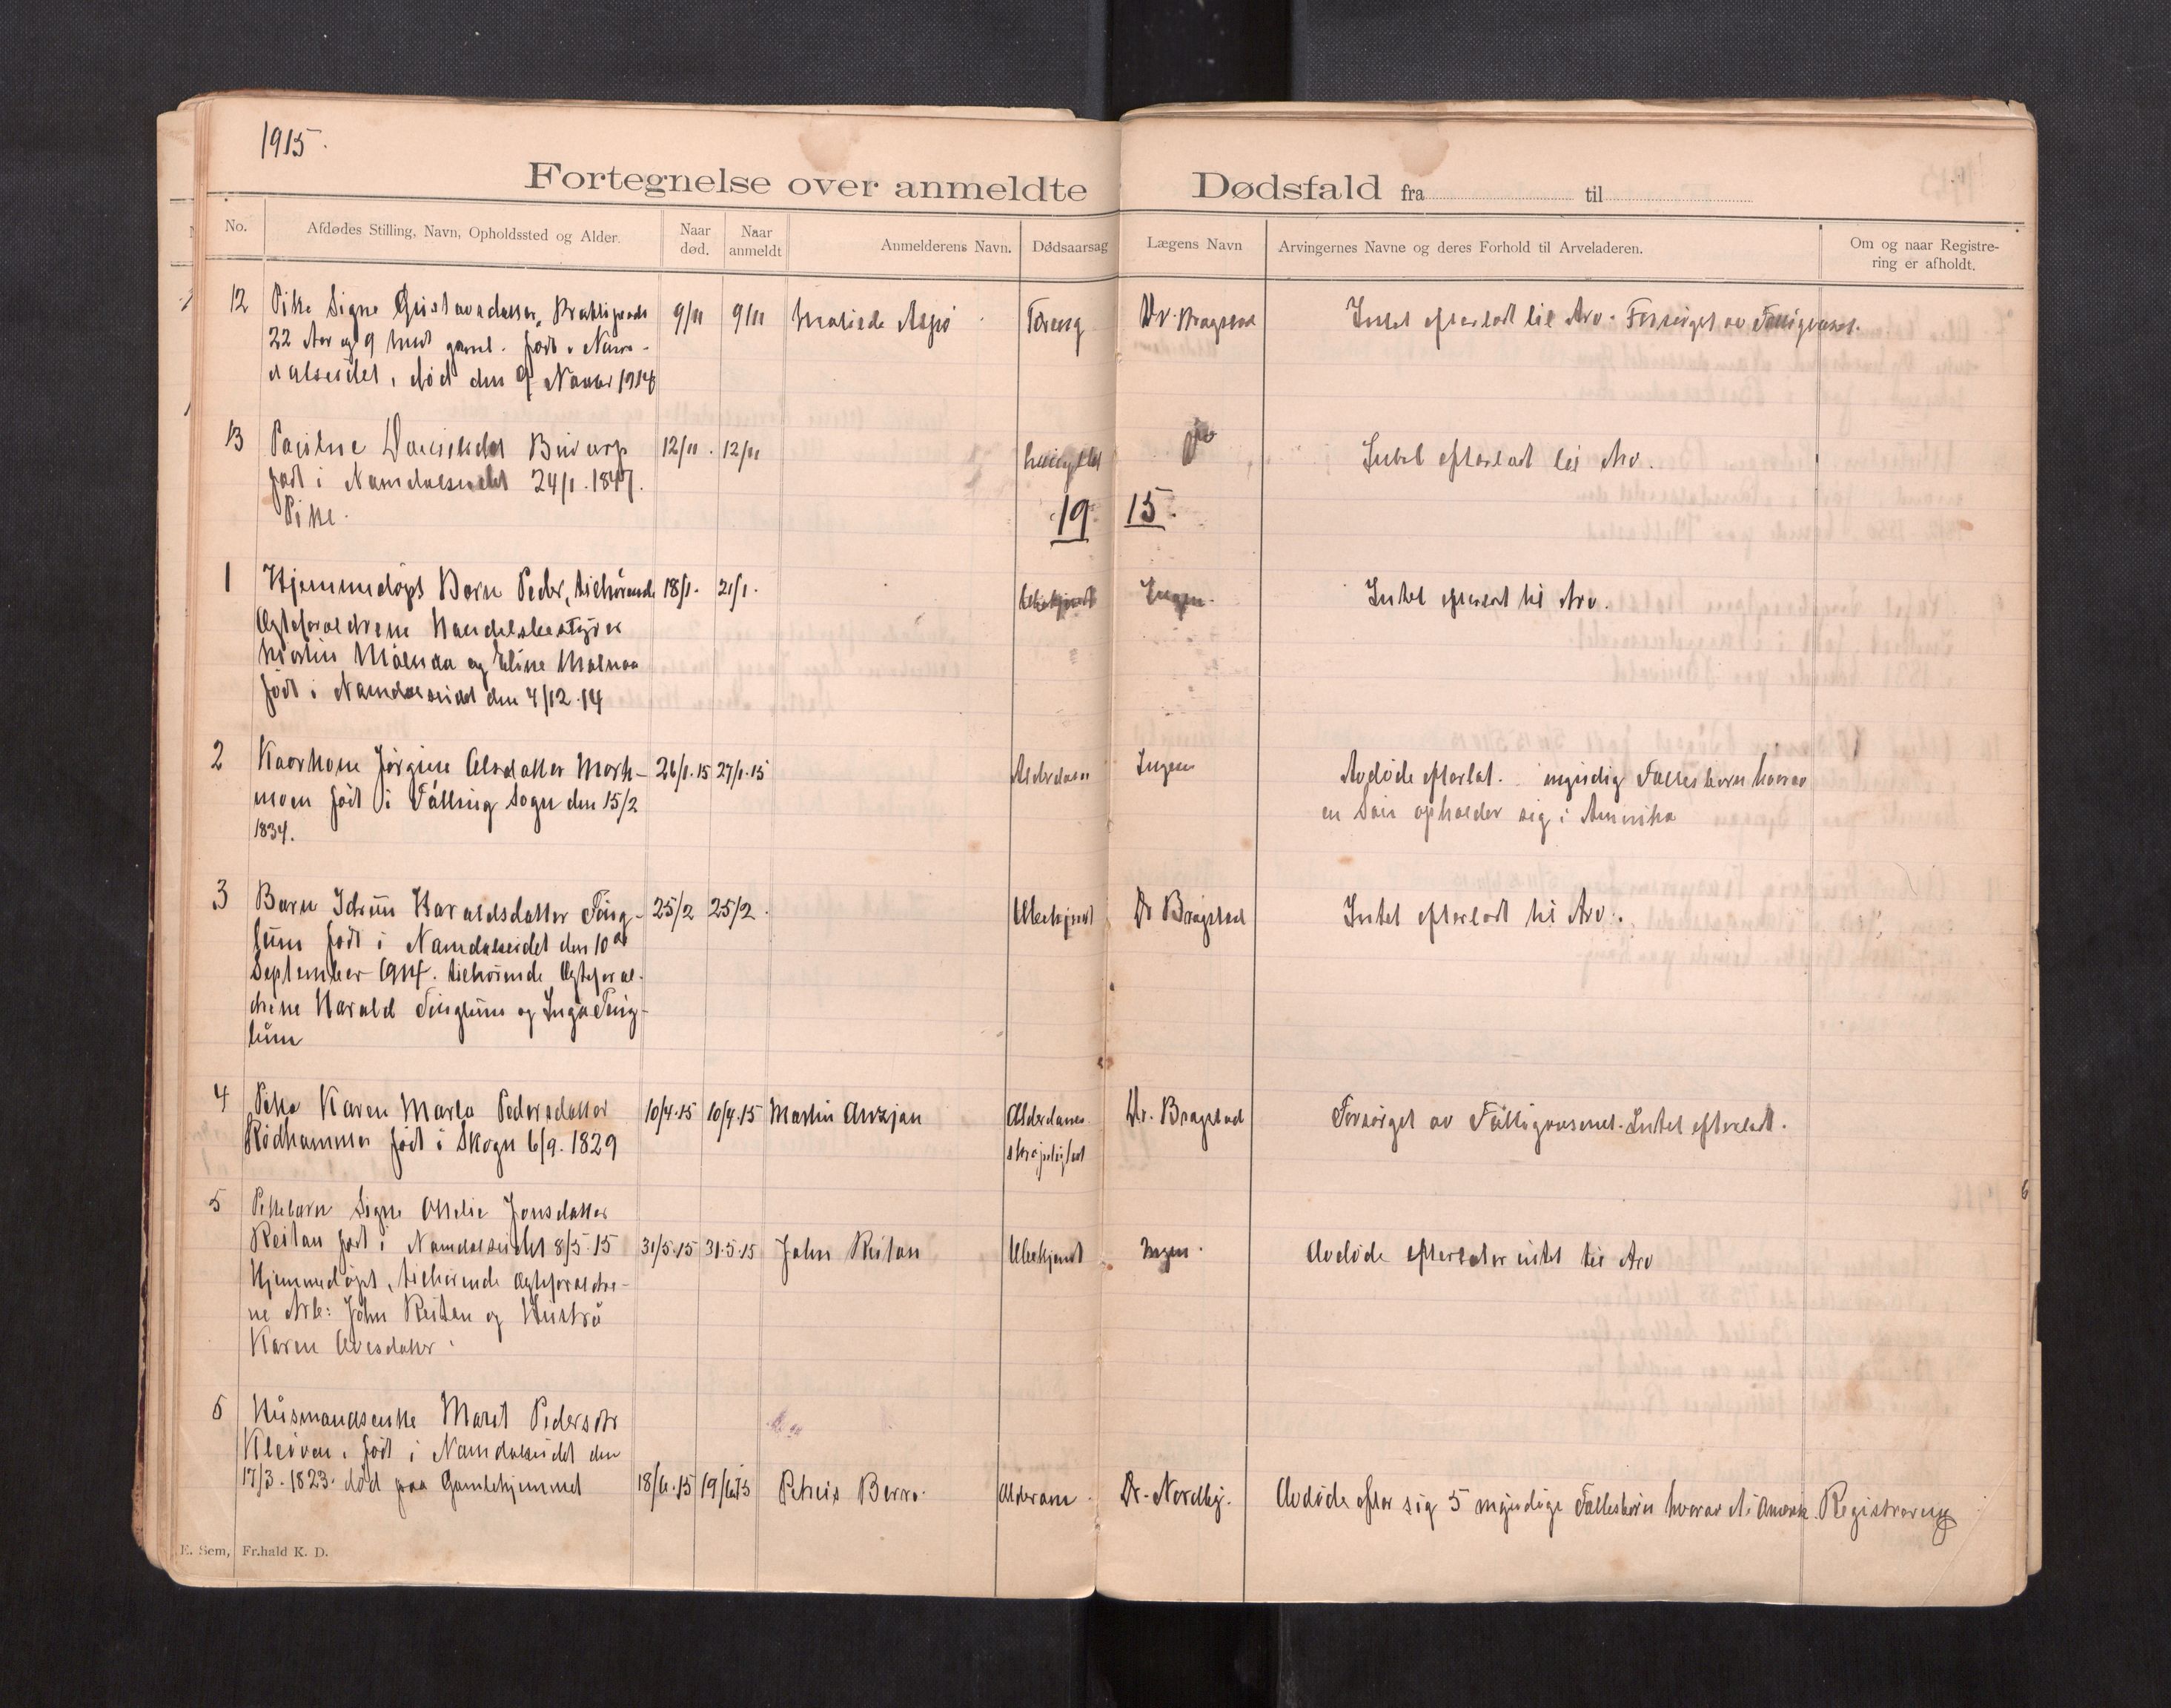 1915.
Fortegnelse over anmeldte Dødsfald fra til
No.
Afdødes Stilling, Navn, Opholdssted og Alder.
Naar død.
Naar anmeldt
Anmelderens Navn.
Dødsaarsag
Lægens Navn
Arvingernes Navne og deres Forhold til Arveladeren.
Om og naar Registrering er afholdt.
12 Pike Signe Gustavsdatter,
22 Aar og 9 Mndr gamel. født i Nam-
dalseidet, død den 9 Novbr 1914
9/11 9/11 Aspø Tæring Dr. Bragstad Intet efterladt til Arv. Forsørget av Fattigvæsenet.
13 Pauline
født i Namdalseidet 24/1. 1847.
Pike.
12/11. 12/11 do Intet efterladt til Arv.
1915.
1 Hjemmedøpt Barn Peder, tilhørende
Ægteforældrene Handelsbestyrer
Martin Malnaa og Eline Malnaa
født i Namdalseidet den 4/12.14
18/1. 21/1. Ubekjendt Ingen. Intet efterladt til Arv.
2 Kaarkone Jørgine Olsdatter Mork-
moen født i Følling Sogn den 15/2
1834.
26/1.15 27/1.15 Alderdom Ingen Avdøde efterlot. myndig Fællesbørn hvorav
en Søn opholder sig i Amerika
3 Barn Idrun Haraldsdatter Fing-
lum født i Namdalseidet den 10de
September 1914. tilhørende Ægteforæl-
drene Harald Finglum og Inga Fing-
lum
25/2 25/2. Ubekjendt Dr Bragstad Intet efterladt til Arv.
4 Pike Karen Marta Pedersdatter
Rødhammer født i Skogn 6/9. 1829
10/4.15 10/4.15 Martin Alderdoms
skrøpelighed
Dr. Bragstad Forsørget av Fattigvæsenet. Intet efterladt.
5 Pikebarn Signe Otelie Jonsdatter
Reitan født i Namdalseidet 8/5-15
Hjemmedøpt, tilhørende Ægteforældre-
ne Arb: John Reitan og Hustru
Karen Olesdatter.
31/5.15 31.5.15 John Reitan Ubekjendt Ingen. Avdøde efterlater intet til Arv
6 Husmandsenke Maret Pedersdtr
Kleiven. født i Namdalseidet den
17/3. 1823. død paa Gamlehjemmet
18/6.15 19/6.15 Petter Berre. Alderdom. Dr. Nordby. Avdøde efter sig 5 myndige Fællesbørn hvorav 1 i Amerik. Registrering
E. Sem, Fr.hald K. D.